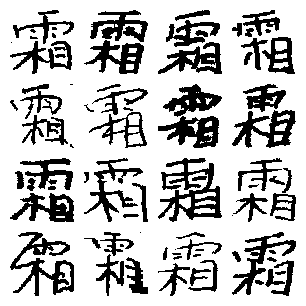 霜霜霜霜
霜霜霜霜
霜霜霜霜
霜霜霜霜